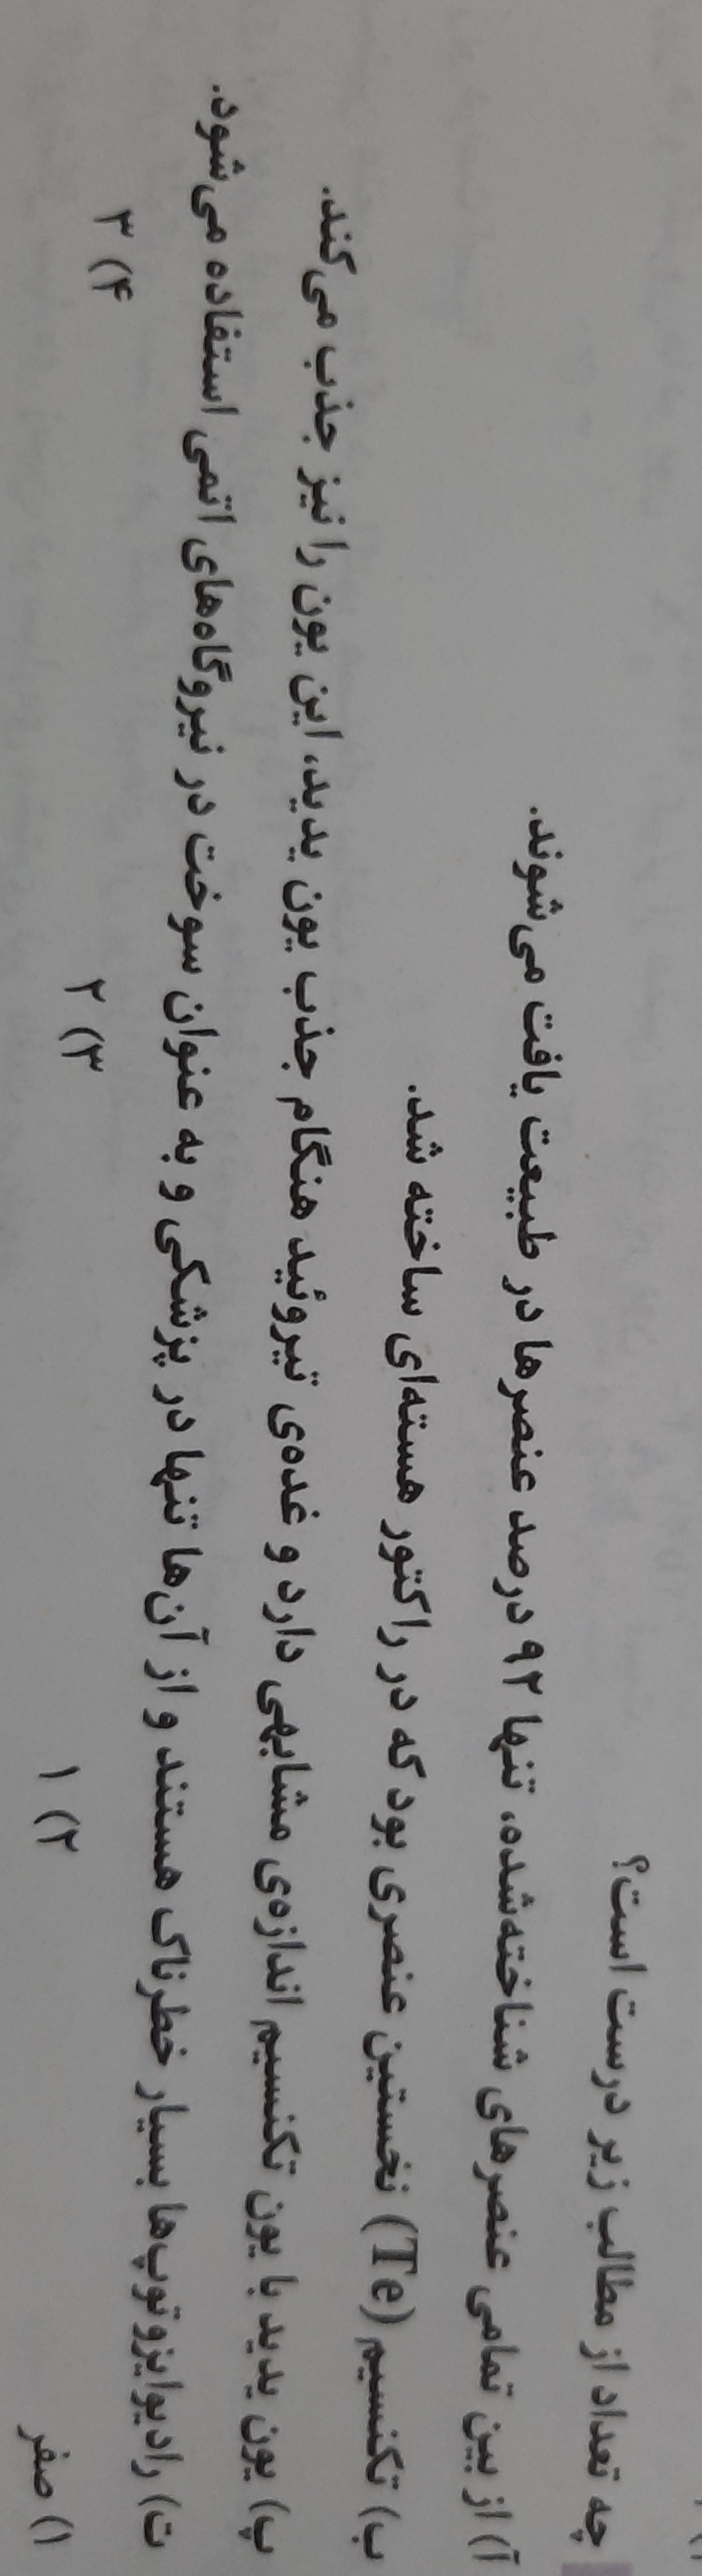 چه تعداد از مطالب زیر درست است؟
آ) از بین تمامی عنصرهای شناخته‌شده، تنها ۹۲ درصد عنصرها در طبیعت یافت می‌شوند.
ب) تکنسیم (Te) نخستین عنصری بود که در راکتور هسته‌ای ساخته شد.
پ) یون یدید با یون تکنسیم اندازه‌ی مشابهی دارد و غده‌ی تیروئید هنگام جذب یون یدید، این یون را نیز جذب می‌کند.
ت) رادیوایزوتوپ‌ها بسیار خطرناک هستند و از آن‌ها تنها در پزشکی و به عنوان سوخت در نیروگاه‌های اتمی استفاده می‌شود.
۱) صفر ۲) ۱ ۳) ۲ ۴) ۳